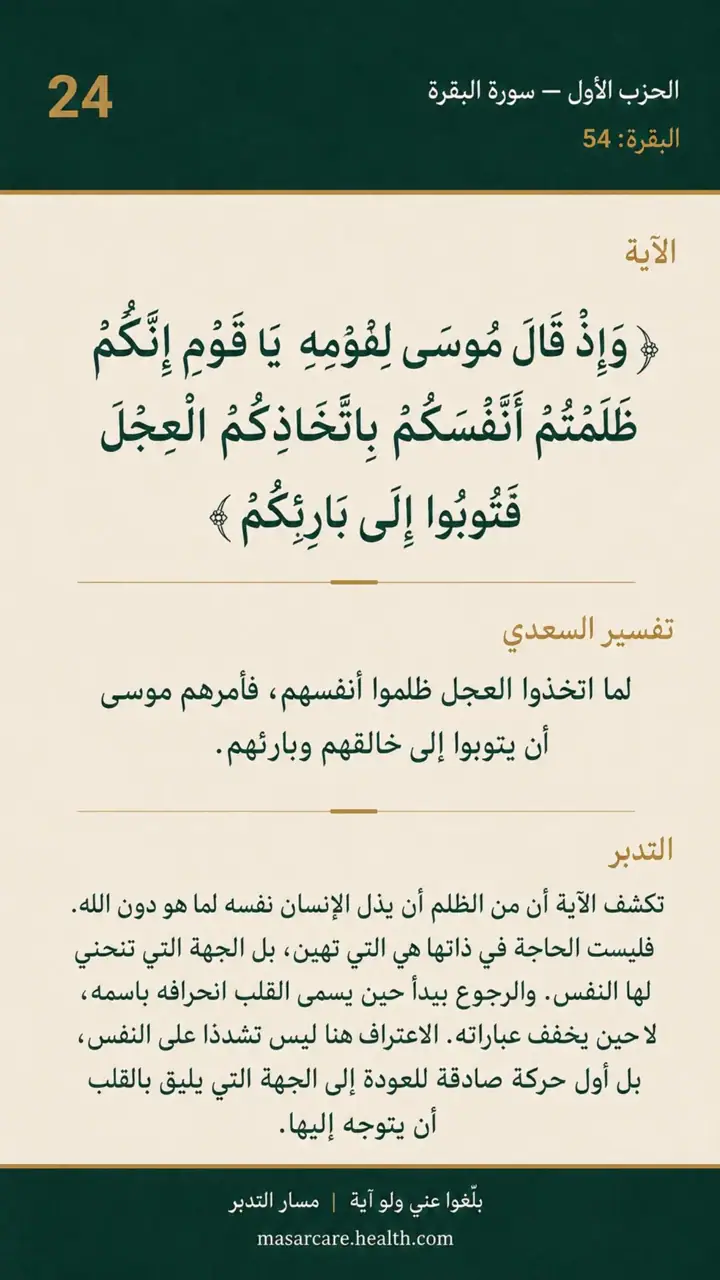 الحزب الأول — سورة البقرة
24
البقرة: 54
الآية
﴿ وَإِذْ قَالَ مُوسَى لِقَوْمِهِ يَا قَوْمِ إِنَّكُمْ
ظَلَمْتُمْ أَنَّفْسَكُمْ بِاتَّخَاذِكُمْ الْعِجْلَ
فَتُوبُوا إِلَى بَارِئِكُمْ ﴾
تفسير السعدي
لما اتخذوا العجل ظلموا أنفسهم، فأمرهم موسى
أن يتوبوا إلى خالقهم وبارئهم.
التدبر
تكشف الآية أن من الظلم أن يذل الإنسان نفسه لما هو دون الله.
فليست الحاجة في ذاتها هي التي تهين، بل الجهة التي تنحني
لها النفس. والرجوع يبدأ حين يسمى القلب انحرافه باسمه،
لا حين يخفف عباراته. الاعتراف هنا ليس تشددًا على النفس،
بل أول حركة صادقة للعودة إلى الجهة التي يليق بالقلب
أن يتوجه إليها.
بلّغوا عني ولو آية | مسار التدبر
masarcare.health.com